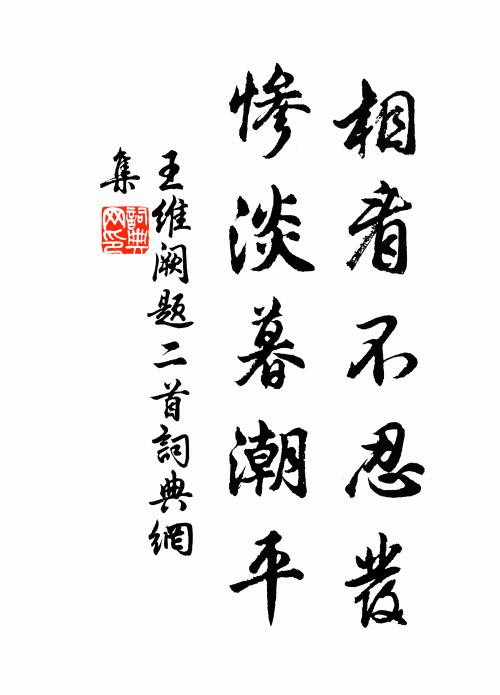 相看不忍發
慘淡暮潮平
王維闕题二首詞典網
集
詞典
网印